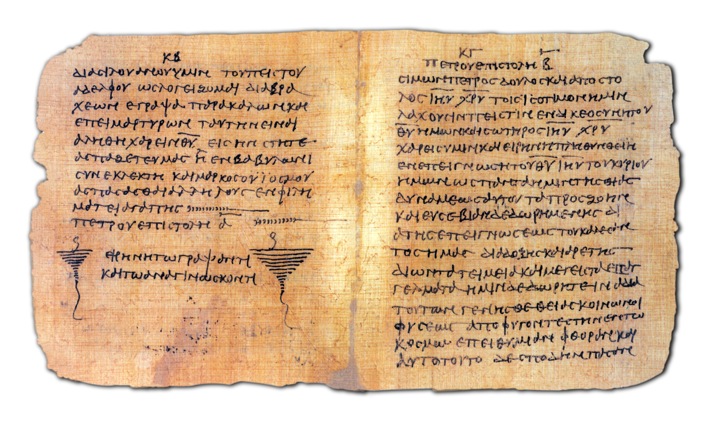 ΚΒ
ΔΙΑ ϹΙΛΟΥΑΝΟΥ ΥΜΙΝ ΤΟΥ ΠΙϹΤΟΥ
ΑΔΕΛΦΟΥ ΩϹ ΛΟΓΕΙΖΟΜΑΙ ΔΙΑ ΒΡΑ
ΧΕΩΝ ΕΓΡΑΨΑ ΠΑΡΑΚΑΛΩΝ ΚΑΙ
ΕΠΕΙΜΑΡΤΥΡΩΝ ΤΑΥΤΗΝ ΕΙΝΑΙ
ΑΛΗΘΗ ΧΑΡΕΙΝ ΘΥ ΕΙϹ ΗΝ ϹΤΗΤΕ
ΑϹΠΑΖΕΤΕ ΥΜΑϹ Η ΕΝ ΒΑΒΥΛΩΝΙ
ϹΥΝΕΚΛΕΚΤΗ ΚΑΙ ΜΑΡΚΟϹ Ο ΥΙΟϹ ΜΟΥ
ΑϹΠΑϹΑϹΘΑΙ ΑΛΛΗΛΟΥϹ ΕΝ ΦΙΛΗ
ΜΑΤΕΙ ΑΓΑΠΗϹ
ΠΕΤΡΟΥ ΕΠΙϹΤΟΛΗ Α
ΕΙΡΗΝΗ ΤΩ ΓΡΑΨΑΝΤΙ
ΚΑΙ ΤΩ ΑΝΑΓΙΝΩϹΚΟΝΤΙ
ΚΓ
ΠΕΤΡΟΥ ΕΠΙϹΤΟΛΗ Β
ϹΙΜΩΝ ΠΕΤΡΟϹ ΔΟΥΛΟϹ ΚΑΙ ΑΠΟϹΤΟ
ΛΟϹ ΙΗΥ ΧΡΥ ΤΟΙϹ ΙϹΟΤΙΜΟΝ ΗΜΙΝ
ΛΑΧΟΥϹΙΝ ΠΙϹΤΙΝ ΕΝ ΔΙΚΕΟϹΥΝΗ ΤΟΥ
ΘΥ ΗΜΩΝ ΚΑΙ ϹΩΤΗΡΟϹ ΙΗΥ ΧΡΥ
ΧΑΡΕΙϹ ΥΜΙΝ ΚΑΙ ΕΙΡΗΝΗ ΠΛΗΘΥΝΘΕΙΗ
ΕΝ ΕΠΕΙΓΝΩϹΗ ΤΟΥ ΘΥ ΙΗΥ ΤΟΥ ΚΥΡΙΟΥ
ΗΜΩΝ ΩϹ ΠΑΝΤΑ ΗΜΙΝ ΤΗϹ ΘΙΑϹ
ΔΥΝΑΜΕΩϹ ΑΥΤΟΥ ΤΑ ΠΡΟϹ ΖΩΗΝ
ΚΑΙ ΕΥϹΕΒΙΑΝ ΔΕΔΩΡΗΜΕΝΗϹ ΔΙ
Α ΤΗϹ ΕΠΕΙΓΝΩϹΕΩϹ ΤΟΥ ΚΑΛΕϹΑΝ
ΤΟϹ ΗΜΑϹ ΔΙΑ ΔΟΞΗϹ ΚΑΙ ΑΡΕΤΗϹ
ΔΙ ΩΝ ΤΑ ΤΕΙΜΕΙΑ ΚΑΙ ΜΕΓΕΙϹΤΑ ΕΠΑΓ
ΓΕΛΜΑΤΑ ΗΜΙΝ ΔΕΔΩΡΗΤΕ ΙΝΑ ΔΙΑ
ΤΟΥΤΩΝ ΓΕΝΗϹΘΕ ΘΕΙΑϹ ΚΟΙΝΩΝΟΙ
ΦΥϹΕΩϹ ΑΠΟΦΥΓΟΝΤΕϹ ΤΗΝ ΕΝ ΤΩ
ΚΟϹΜΩ ΕΠΕΙΘΥΜΙΑΝ ΦΘΟΡΑϹ ΚΑΙ
ΑΥΤΟ ΤΟΥΤΟ ΔΕ ϹΠΟΥΔΗΝ ΠΑϹΑΝ